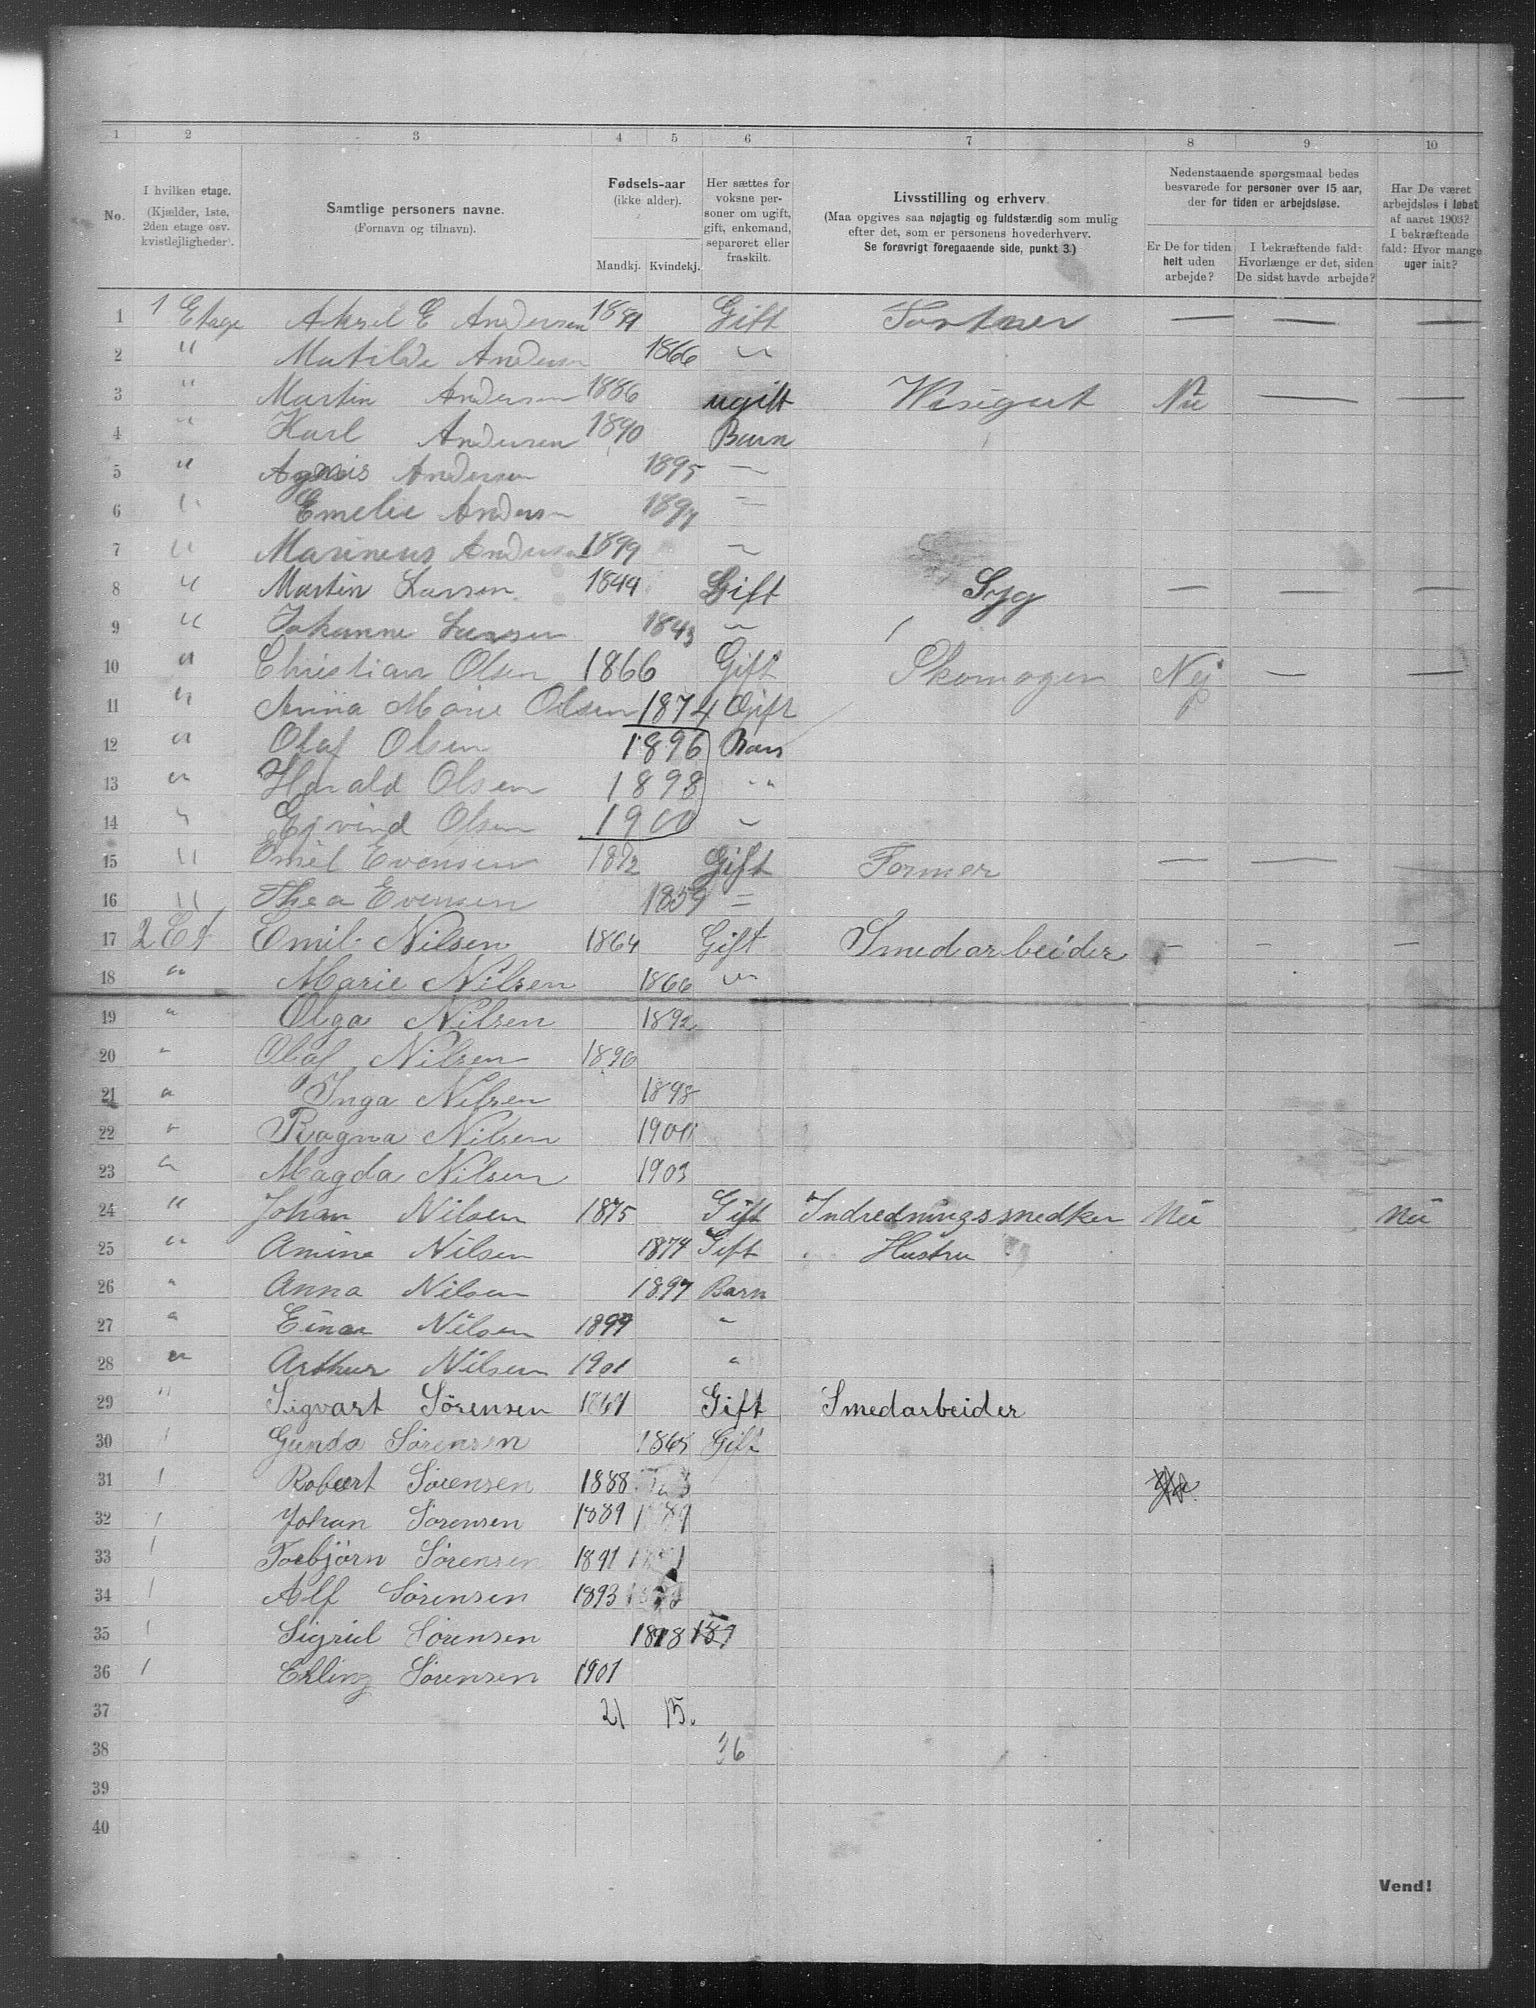 1 2 3 4 5 6 7 8 9 10
No. I hvilken etage. (Kjælder, 1ste, 2den etage osv. kvistlejligheder). Samtlige personers navne. (Fornavn og tilnavn). Fødsels-aar (ikke alder). Mandkj. Kvindekj. Her sættes for voksne personer om ugift, gift, enkemand, separeret eller fraskilt. Livsstilling og erhverv. (Maa opgives saa nøjagtig og fuldstændig som mulig efter det, som er personens hovederhverv. Se forøvrigt foregaaende side, punkt 3.) Nedenstaaende spørgsmaal bedes besvarede for personer over 15 aar, der for tiden er arbejdsløse. Er De for tiden helt uden arbejde? I bekræftende fald: Hvorlænge er det, siden De sidst havde arbejde? Har De været arbejdsløs i løbet af aaret 1903? I bekræftende fald: Hvor mange uger ialt?
1 1 Etage Aksel E Andersen Gift — — —
2 " Matilde Andersen 1866 "
3 " Martin Andersen 1886 ugift Visegut — —
4 " Karl Andersen 1890 Barn
5 " Agnis Andersen 1895 —
6 " Emelie Andersen 1897 —
7 " Marineus Andersen 1899 "
8 " Martin Larsen 1844 Gift Syg — — —
9 " Johanne Larsen 1843 "
10 " Christian Olsen 1866 Gift Skomager Nej — —
11 " Anna Marie Olsen 1874 Gift
12 " Olaf Olsen 1896 Barn
13 " Harald Olsen 1898 "
14 " Ejvind Olsen 1900 "
15 " Emil Evensen 1872 Gift Former — — —
16 " Thea Evensen 1859 =
17 2 Et Emil Nilsen 1864 Gift Smedarbeider — — —
18 " Marie Nilsen 1866 "
19 " Olga Nilsen 1892
20 " Olaf Nilsen 1890
21 " Inga Nilsen 1898
22 " Ragna Nilsen 1901
23 " Magda Nilsen 1903
24 " Johan Nilsen 1875 Gift Indredningssnedker Nei Nei
25 " Amine Nilsen 1874 Gift Hustru
26 " Anna Nilsen 1897 Barn
27 " Einar Nilsen 1899 "
28 " Arthur Nilsen 1901 "
29 " Sigvart Sörensen 1861 Gift Smedarbeider
30 " Gunda Sörensen 1865 Gift
31 " Robert Sörensen 1888
32 " Johan Sörensen 1889 1889
33 " Torbjörn Sörensen 1891 1891
34 " Alf Sörensen 1893
35 " Sigrid Sörensen 1898
36 " Erling Sörensen 1901
37 21 15.
38 36
39
40
Vend!